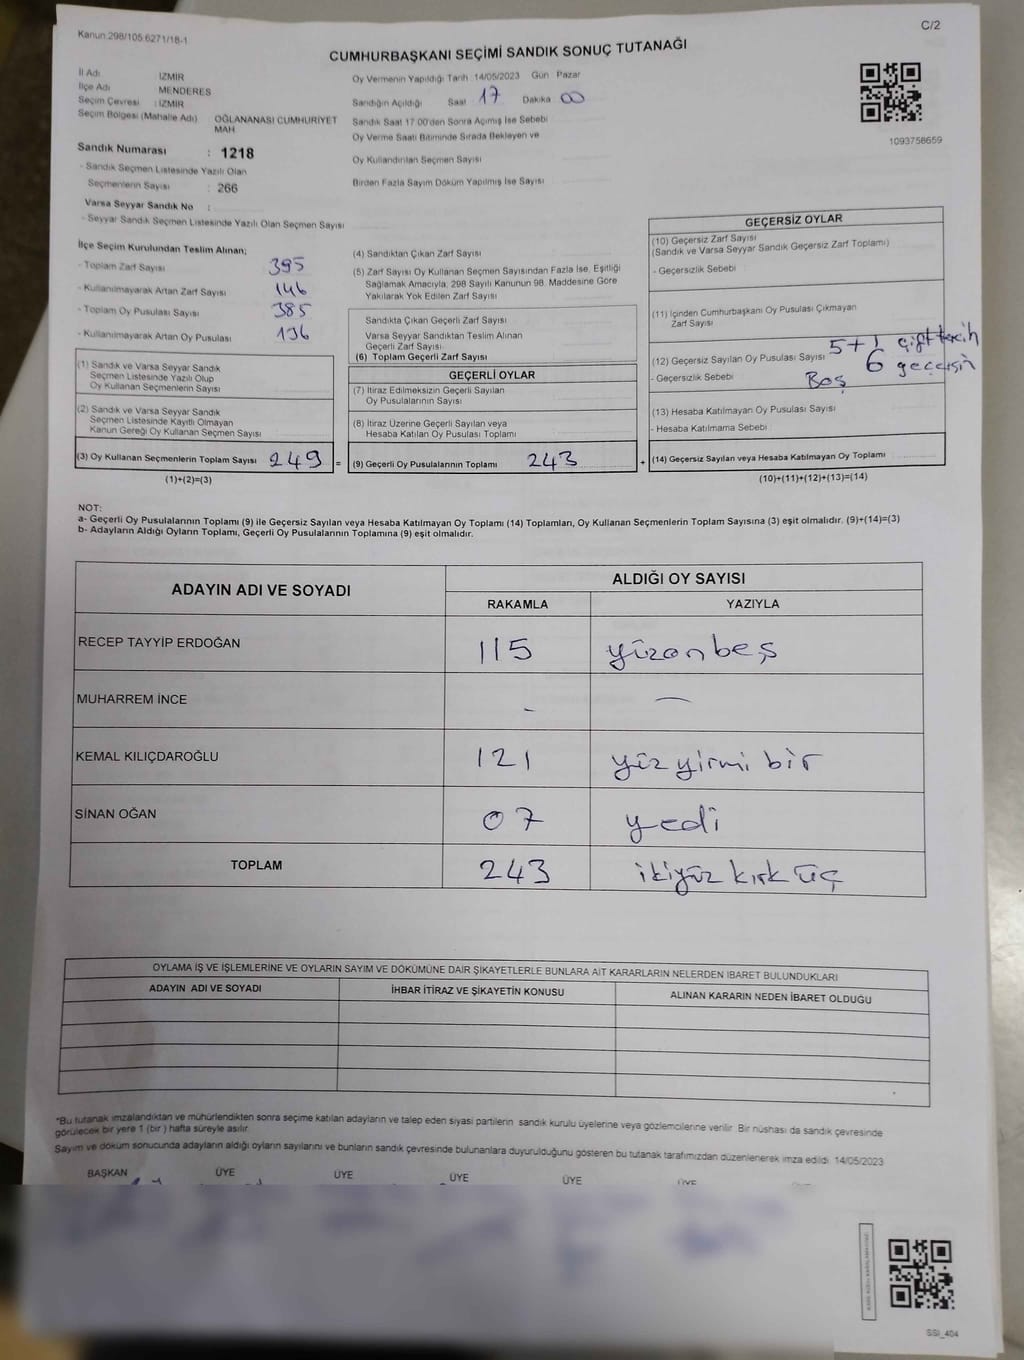 Kanun.298/105.6271/18-1
C/2
CUMHURBAŞKANI SEÇİMİ SANDIK SONUÇ TUTANAĞI
İl Adı : İZMİR
İlçe Adı MENDERES
Seçim Çevresi : İZMİR
Seçim Bölgesi (Mahalle Adı) OĞLANANASI CUMHURİYET MAH
Sandık Numarası : 1218
- Sandık Seçmen Listesinde Yazılı Olan
Seçmenlerin Sayısı : 266
Varsa Seyyar Sandık No :
- Seyyar Sandık Seçmen Listesinde Yazılı Olan Seçmen Sayısı
Oy Vermenin Yapıldığı Tarih 14/05/2023 Gün Pazar
Sandığın Açıldığı Saat 17 Dakika 00
Sandık Saat 17:00'den Sonra Açılmış İse Sebebi
Oy Verme Saati Bitiminde Sırada Bekleyen ve
Oy Kullandırılan Seçmen Sayısı
Birden Fazla Sayım Döküm Yapılmış İse Sayısı
1093758659
İlçe Seçim Kurulundan Teslim Alınan;
- Toplam Zarf Sayısı 395
- Kullanılmayarak Artan Zarf Sayısı 146
- Toplam Oy Pusulası Sayısı 385
- Kullanılmayarak Artan Oy Pusulası 136
(1) Sandık ve Varsa Seyyar Sandık
Seçmen Listesinde Yazılı Olup
Oy Kullanan Seçmenlerin Sayısı
(2) Sandık ve Varsa Seyyar Sandık
Seçmen Listesinde Kayıtlı Olmayan
Kanun Gereği Oy Kullanan Seçmen Sayısı
(3) Oy Kullanan Seçmenlerin Toplam Sayısı 249 =
(1)+(2)=(3)
(4) Sandıktan Çıkan Zarf Sayısı
(5) Zarf Sayısı Oy Kullanan Seçmen Sayısından Fazla İse, Eşitliği
Sağlamak Amacıyla; 298 Sayılı Kanunun 98. Maddesine Göre
Yakılarak Yok Edilen Zarf Sayısı
Sandıkta Çıkan Geçerli Zarf Sayısı
Varsa Seyyar Sandıktan Teslim Alınan
Geçerli Zarf Sayısı
(6) Toplam Geçerli Zarf Sayısı
GEÇERLİ OYLAR
(7) İtiraz Edilmeksizin Geçerli Sayılan
Oy Pusulalarının Sayısı
(8) İtiraz Üzerine Geçerli Sayılan veya
Hesaba Katılan Oy Pusulası Toplamı
(9) Geçerli Oy Pusulalarının Toplamı 243 +
GEÇERSİZ OYLAR
(10) Geçersiz Zarf Sayısı
(Sandık ve Varsa Seyyar Sandık Geçersiz Zarf Toplamı)
- Geçersizlik Sebebi
(11) İçinden Cumhurbaşkanı Oy Pusulası Çıkmayan
Zarf Sayısı
(12) Geçersiz Sayılan Oy Pusulası Sayısı 5+1 çift tercih
6 geçersiz
- Geçersizlik Sebebi Boş
(13) Hesaba Katılmayan Oy Pusulası Sayısı
- Hesaba Katılmama Sebebi
(14) Geçersiz Sayılan veya Hesaba Katılmayan Oy Toplamı
(10)+(11)+(12)+(13)=(14)
NOT:
a- Geçerli Oy Pusulalarının Toplamı (9) ile Geçersiz Sayılan veya Hesaba Katılmayan Oy Toplamı (14) Toplamları, Oy Kullanan Seçmenlerin Toplam Sayısına (3) eşit olmalıdır. (9)+(14)=(3)
b- Adayların Aldığı Oyların Toplamı, Geçerli Oy Pusulalarının Toplamına (9) eşit olmalıdır.
ADAYIN ADI VE SOYADI ALDIĞI OY SAYISI
RAKAMLA YAZIYLA
RECEP TAYYİP ERDOĞAN 115 yüzonbeş
MUHARREM İNCE - —
KEMAL KILIÇDAROĞLU 121 yüzyirmi bir
SİNAN OĞAN 07 yedi
TOPLAM 243 ikiyüz kırk üç
OYLAMA İŞ VE İŞLEMLERİNE VE OYLARIN SAYIM VE DÖKÜMÜNE DAİR ŞİKAYETLERLE BUNLARA AİT KARARLARIN NELERDEN İBARET BULUNDUKLARI
ADAYIN ADI VE SOYADI İHBAR İTİRAZ VE ŞİKAYETİN KONUSU ALINAN KARARIN NEDEN İBARET OLDUĞU
*Bu tutanak imzalandıktan ve mühürlendikten sonra seçime katılan adayların ve talep eden siyasi partilerin sandık kurulu üyelerine veya gözlemcilerine verilir. Bir nüshası da sandık çevresinde
görülecek bir yere 1 (bir) hafta süreyle asılır.
Sayım ve döküm sonucunda adayların aldığı oyların sayılarını ve bunların sandık çevresinde bulunanlara duyurulduğunu gösteren bu tutanak tarafımızdan düzenlenerek imza edildi. 14/05/2023
BAŞKAN ÜYE ÜYE ÜYE ÜYE ÜYE
SSI_404